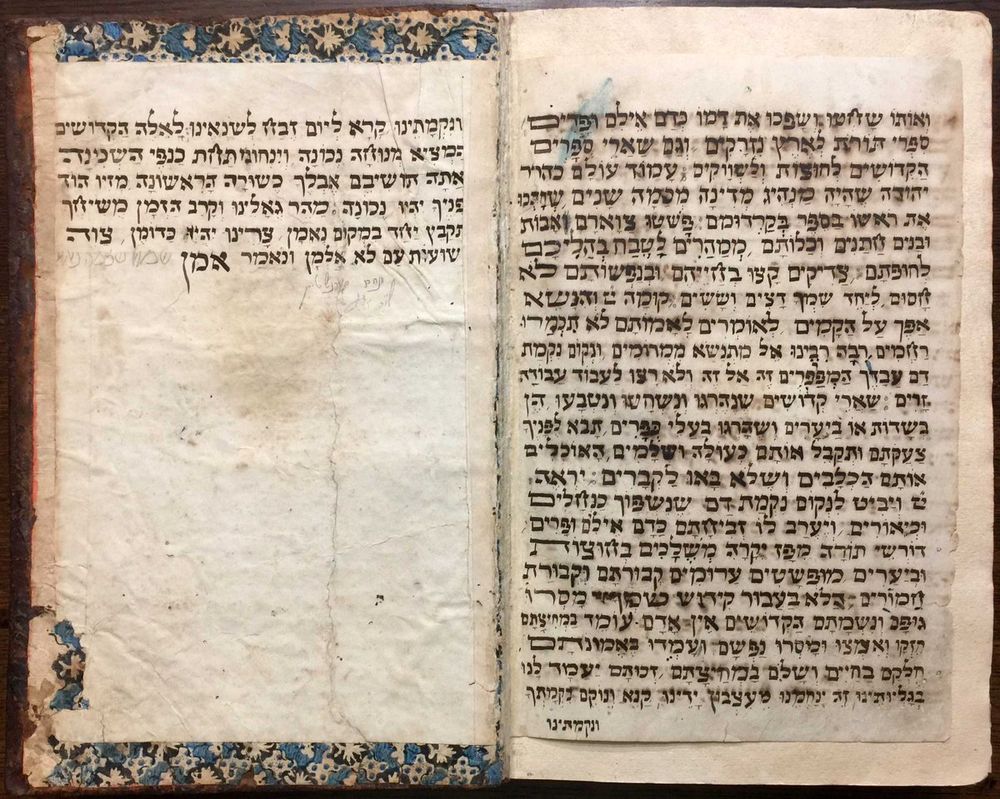 ואותו שחטו ושפכו את דמו כדם אילם ופרים
ספרי תורת לארץ נזרקים וגם שארי ספרים
הקדושים לחוצות ולשווקים עמוד עולם כהרר
יהודה שהיה מנהיג מדינה מכמה שנים
את ראשו בספר בקרדומם פששטו צוארם ואבות
ובנים חתנים וכלותם ממהרים לטבח בהליכם
לחופתם צדיקים קצו בחייהם ובנפשותם לא
חסום ליחד שמך רצים וששים קומה והנשא
אפך על הקמים לאומרים לאמותם לא תכמרו
רחמים רבה רבינו אל מתנשא ממרומים ונקום נקמת
דם עבדך המפפרים זה אל זה ולא רצו לעבוד עבודה
זרים שארי קדושים שנהרגו ונשחטו ונטבעו הן
בשדות או ביערים ושהרגו בעלי כפרים תבא לפניך
צעקתם ותקבל אותם כעולה ושלמים האוכלים
אותם הכלבים ושלא באו לקברים יראה
ויביט לנקום נקמת דם שנשפוך כנחלים
וכיאורים ויערב לו זביחתם כדם אילם ופרים
דורשי תורה מפז יקרה משלכים בחוצות
וביערים מופששטים ערומים קבורתם וקבורת
חמורים הלא בעבור קידוש מסרו
גופם ונשמתם הקדושים אין אדם עומד במחיצתם
חזקו ואמצו ומסרו נפשם ועמדו באמונתם
חלקם בחיים ושלם במחיצתם זכותם יעמד לנו
בגליותינו זה ינחלנו מעצבון ידינו קנא ונוקם נקמתך
ונקמתינו
ונקמתינו קרא ליום זבח לשנאינו לאלה הקדושים
המציא מנוחה נכונה וינחומו תחת כנפי השכינה
אתה תושיבם אבלך כשורה הראשונה מזיו הוד
פניך יהיו נכונה מהר גאלינו וקרב הזמן משיחך
תקבץ יחד במקום נאמן צרינו יהיו כדומן צוה
שועות עם לא אלמן ונאמר אמן